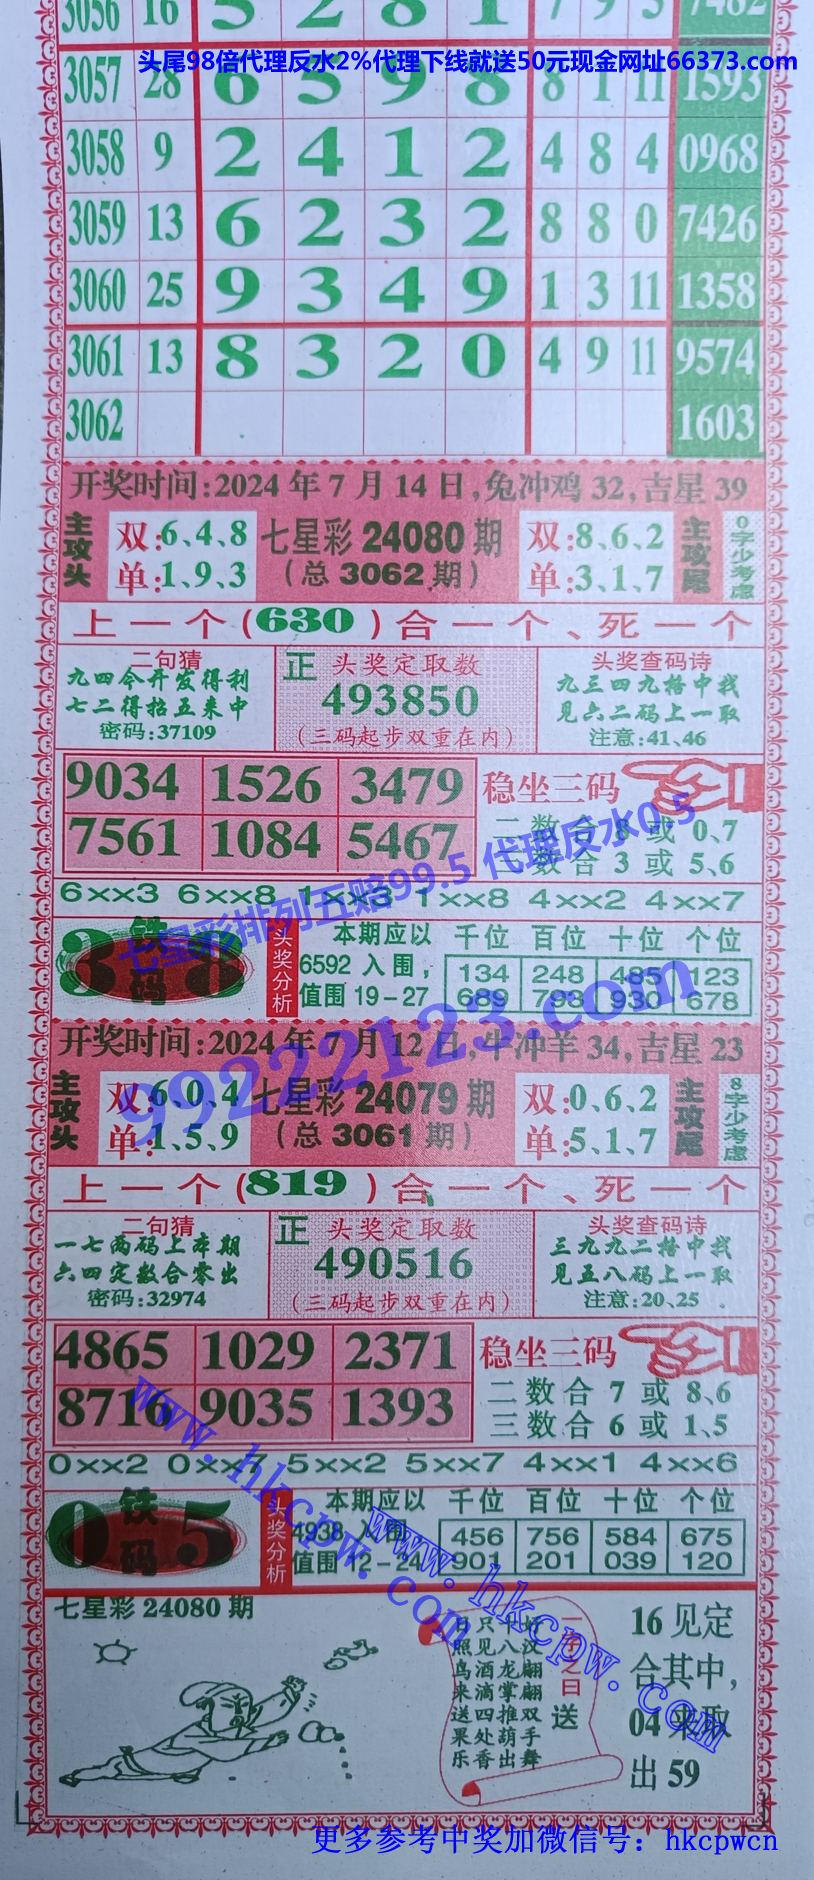 3056 16 5 2 8 1 7 9 5 7482
头尾98倍代理反水2%代理下线就送50元现金网址66373.com
3057 28 6 5 9 8 8 1 11 1593
3058 9 2 4 1 2 4 8 4 0968
3059 13 6 2 3 2 8 8 0 7426
3060 25 9 3 4 9 1 3 11 1358
3061 13 8 3 2 0 4 9 11 9574
3062 1603
开奖时间:2024年7月14日,兔冲鸡32,吉星39
主攻头
双:6、4、8
单:1、9、3
七星彩24080期
(总3062期)
双:8、6、2
单:3、1、7
主攻尾
0字少考虑
上一个(630)合一个、死一个
二句猜
九四今开发得利
七二得招五来中
密码:37109
正 头奖定取数
493850
(三码起步双重在内)
头奖查码诗
九三四九格中找
见六二码上一取
注意:41、46
9034 1526 3479
7561 1084 5467
稳坐三码
二数合8或0、7
三数合3或5、6
6××3 6××8 1××3 1××8 4××2 4××7
3 铁码 8
头奖分析
本期应以
6592入围,
值围19-27
千位 百位 十位 个位
134 248 485 123
689 793 930 678
七星彩排列五赔99.5 代理反水0.5
99222123.com
开奖时间:2024年7月12日,牛冲羊34,吉星23
主攻头
双:6、0、4
单:1、5、9
七星彩24079期
(总3061期)
双:0、6、2
单:5、1、7
主攻尾
8字少考虑
上一个(819)合一个、死一个
二句猜
一七两码上本期
六四定数合零出
密码:32974
正 头奖定取数
490516
(三码起步双重在内)
头奖查码诗
三九九二格中找
见五八码上一取
注意:20、25
4865 1029 2371
8716 9035 1393
稳坐三码
二数合7或8、6
三数合6或1、5
0××2 0××7 5××2 5××7 4××1 4××6
0 铁码 5
头奖分析
本期应以
4938入围,
值围12-24
千位 百位 十位 个位
456 756 584 675
901 201 039 120
www.hkcpw.com
www.hkcpw.com
七星彩24080期
一字之曰
送
好汉翩翩双手舞
十八龙掌推葫出
只见酒滴四处香
日照鸟来送果乐
16见定
合其中,
04来取
出59
更多参考中奖加微信号：hkcpwcn